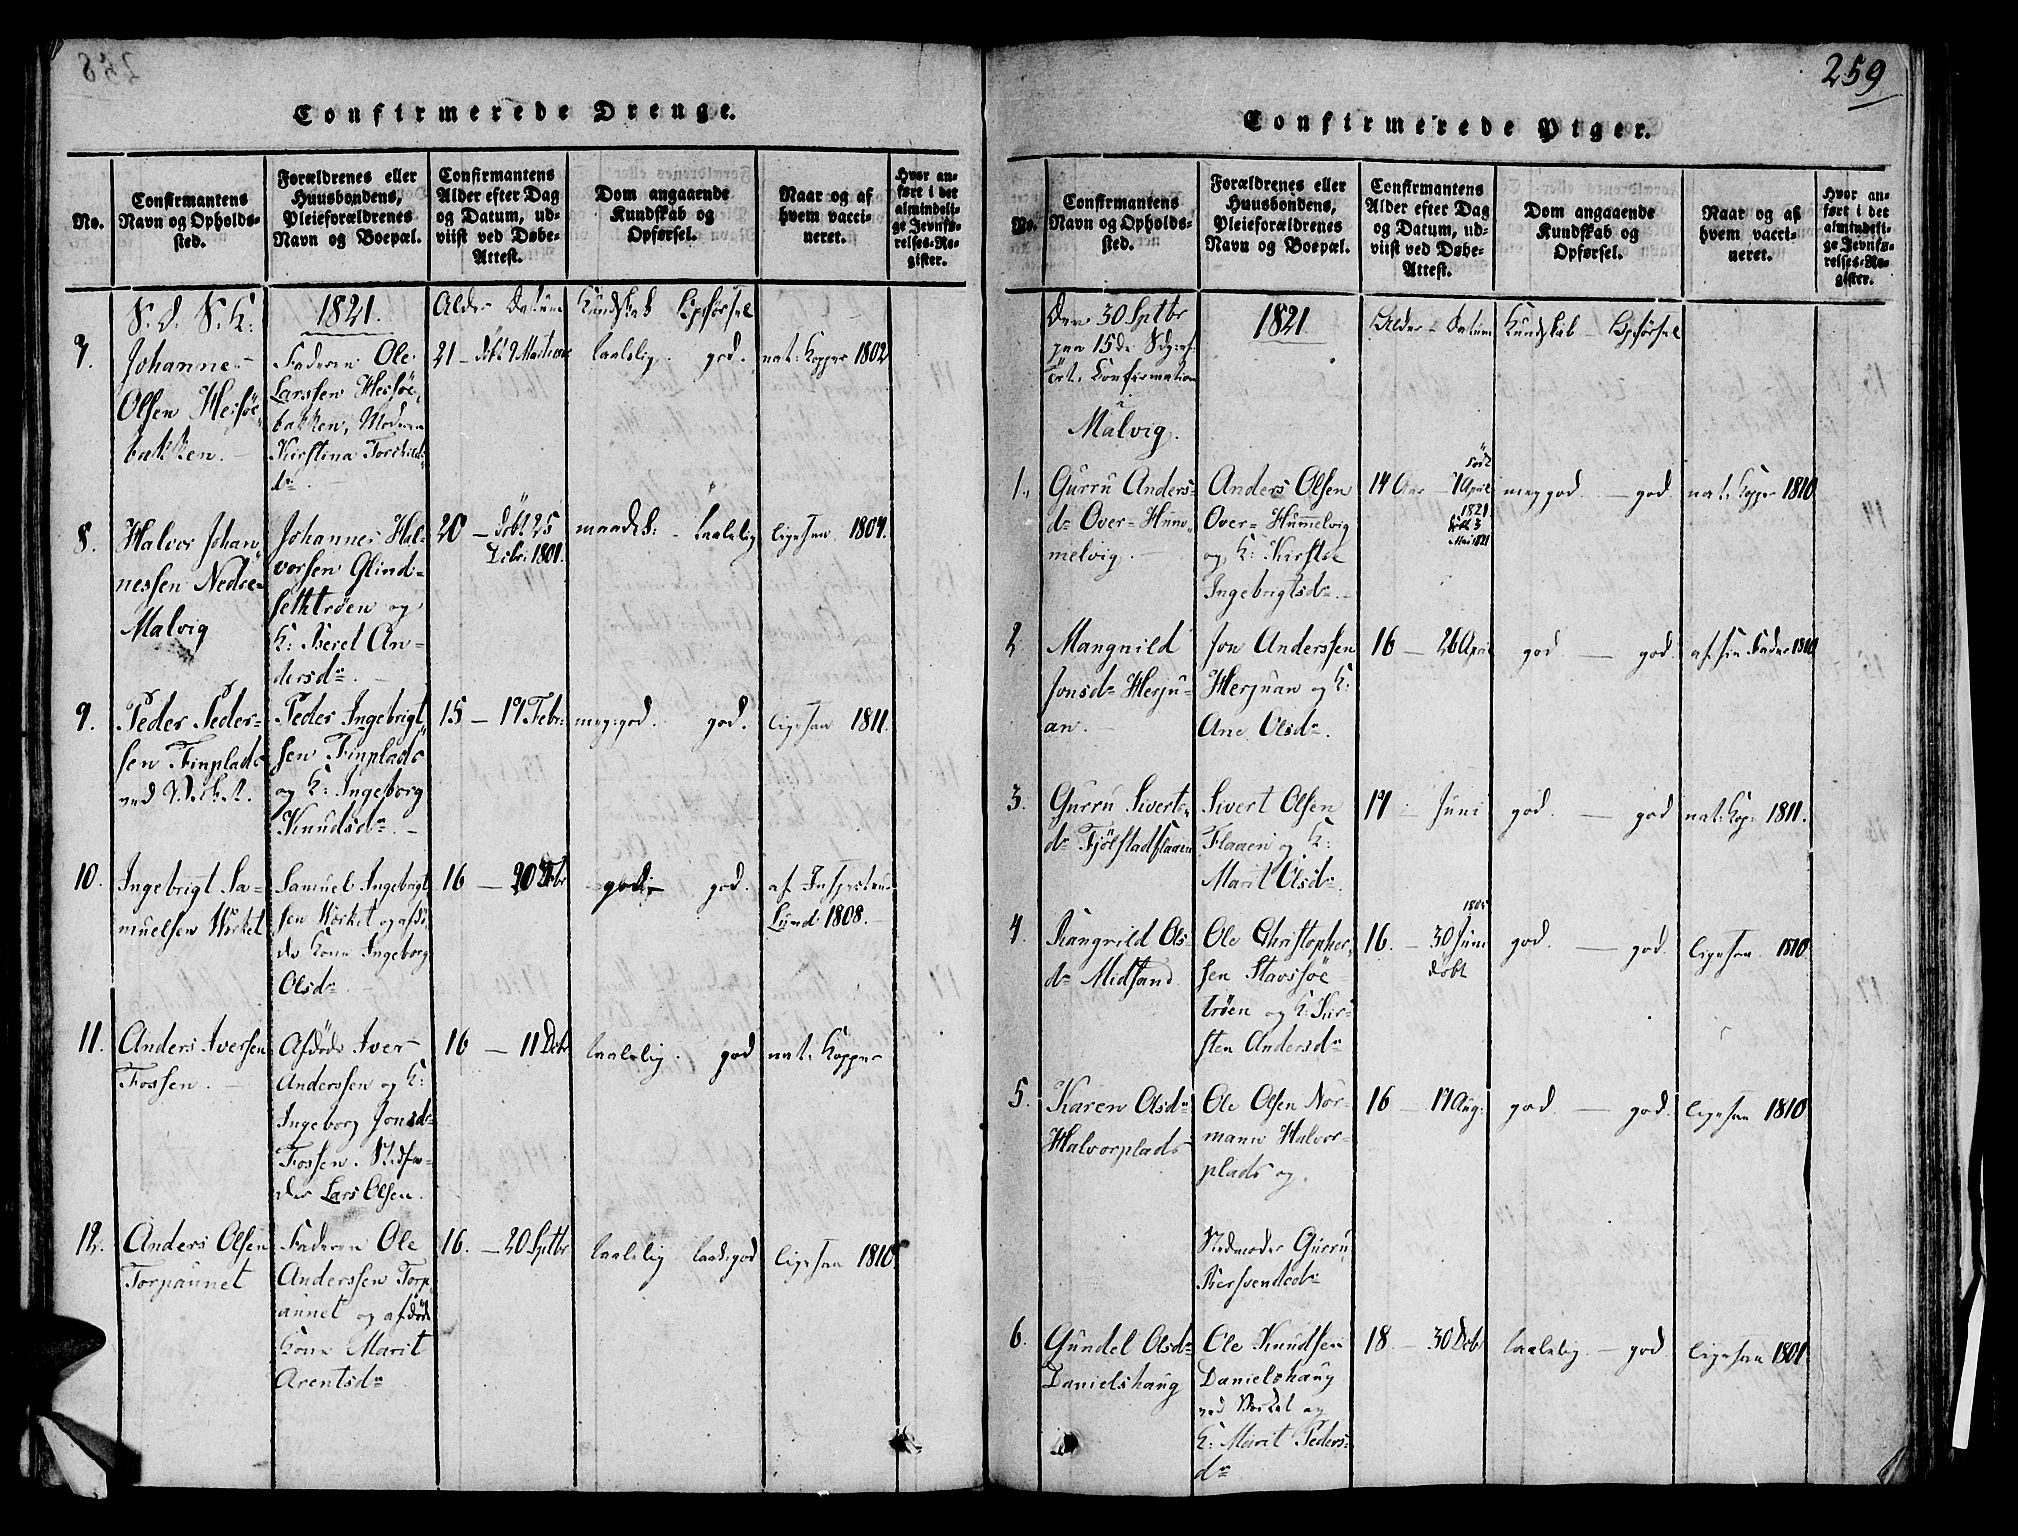 258
Confirmerede Drenge.
No.
Confirmantens
Navn og Opholds-
sted.
Forældrenes eller
Huusbondens,
Pleieforældrenes
Navn og Boepæl.
Confirmantens
Alder efter Dag
og Datum, ud-
viist ved Døbe-
Attest.
Dom angaaende
Kundskab og
Opførsel.
Naar og af
hvem vacci-
neret.
Hvor an-
ført i det
almindeli-
ge Jevnfø-
relses-Re-
gister.
S. D. S. K:
1821.
Alder Datum
Kundskab Opførsel
7.
Johanne-
Olsen Hessöe
bakken.
Faderen Ole
Larssen Hessöe
bakken, Moderen
Kirstina Torchilds
dr.
21 - döbt 9 Marti
taalelig. god.
nat: Kopper 1802
8.
Halvor Johan
nessen Nedre
Malvig
Johannes Hal-
vorsen Glind-
sethtröen og
K: Beret An-
dersdr.
20 - Döbt 25
Debr. 1801.
maadel: - taalelig
ligesaa 1804.
9.
Peder Peder-
sen Finplads
ved
Peder Ingebrigt
sen Finplads
og K: Ingeborg
Knudsdr.
15 - 17 Febr:
meg: god. god.
ligesaa 1811.
10.
Ingebrigt Sa-
muelsen Wirket
Samuel Ingebrigt
sen Wirket og afdö
de Kone Ingeborg
Olsdr.
16 - 20
god, - god.
af
Lund 1808.
11.
Anders Iversen
Fossen.
Afdöde Iver
Anderssen og K:
Ingeborg Jonsdr
Fossen. Stedfa-
der Lars Olsen.
16 - 11 Debr
taalelig. god
nat: Kopper
12.
Anders Olsen
Torpaunet
Faderen Ole
Anderssen Torp
aunet og afdöde
Kone Marit
Arentsdr
16. - 20 Septbr
taalelig taal: god
ligesaa 1810
259
Confirmerede Piger.
No.
Confirmantens
Navn og Opholds-
sted.
Forældrenes eller
Huusbondens,
Pleieforældrenes
Navn og Boepæl.
Confirmantens
Alder efter Dag
og Datum, ud-
viist ved Døbe-
Attest.
Dom angaaende
Kundskab og
Opførsel.
Naar og af
hvem vacci-
neret.
Hvor an-
ført i det
almindeli-
ge Jevnfø-
relses-Re-
gister.
Den 30 Septbr
paa 15de
Confirmation
i
Malvig.
1821
Alder - Datum
Kundskab - Opförsel
1.
Gurru Anders-
dr Over-Hum-
melvig.
Anders Olsen
Over-Hummelvig
og K: Kirsten
Ingebrigtsdr.
14 Aar - 7 April
1821
meg god. - god.
nat: Kopper 1810
2.
Mangnild
Jonsdr Herju-
an.
Jon Anderssen
Herjuan og K:
Ane Olsdr.
16 - 26 April
god. - god.
af sin Fader 1810
3.
Gurru Siverts-
dr Fjölstadflaaen
Sivert Olsen
Flaaen og K:
Marit Olsdr.
17 - Juni
god. - god
nat: Kop: 1811.
4.
Rangnild Ols
dr Midsand
Ole Christopher-
sen Stavssöe
tröen og K: Kir-
sten Andersdr
16. - 30 Juni
döbt
god. - god.
ligesaa 1810
5.
Karen Olsdr
Halvorplads
Ole Olsen Nor-
mann Halvor-
plads og
Stedmoder Gurru
Bersvendsdr
16 - 17 Aug:
god. - god.
ligesaa 1810
6.
Gundel Olsdr
Danielshaug
Ole Knudsen
Danielshaug
ved og
K: Marit Peders-
dr
18 - 30 Debr
taalelig. - god
ligesaa 1801